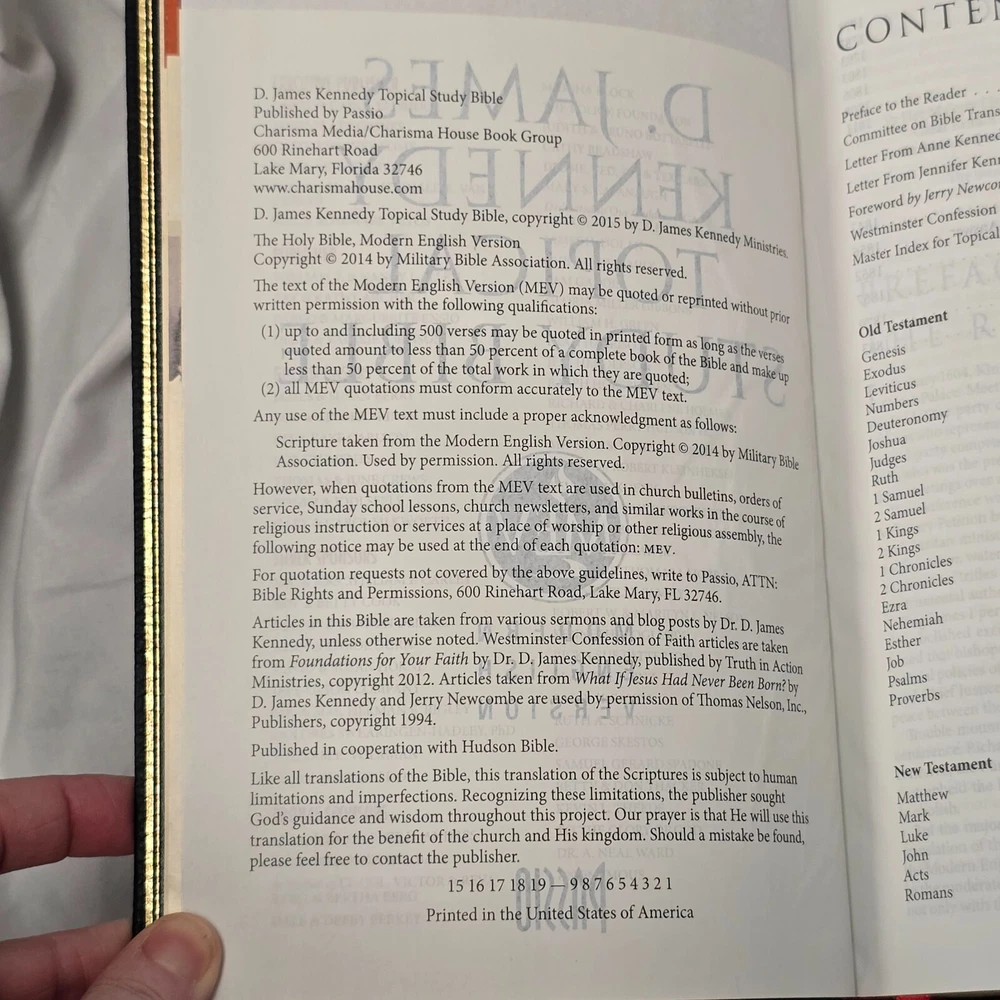 D. James Kennedy Topical Study Bible
Published by Passio
Charisma Media/Charisma House Book Group
600 Rinehart Road
Lake Mary, Florida 32746
www.charismahouse.com
D. James Kennedy Topical Study Bible, copyright © 2015 by D. James Kennedy Ministries.
The Holy Bible, Modern English Version
Copyright © 2014 by Military Bible Association. All rights reserved.
The text of the Modern English Version (MEV) may be quoted or reprinted without prior
written permission with the following qualifications:
(1) up to and including 500 verses may be quoted in printed form as long as the verses
quoted amount to less than 50 percent of a complete book of the Bible and make up
less than 50 percent of the total work in which they are quoted;
(2) all MEV quotations must conform accurately to the MEV text.
Any use of the MEV text must include a proper acknowledgment as follows:
Scripture taken from the Modern English Version. Copyright © 2014 by Military Bible
Association. Used by permission. All rights reserved.
However, when quotations from the MEV text are used in church bulletins, orders of
service, Sunday school lessons, church newsletters, and similar works in the course of
religious instruction or services at a place of worship or other religious assembly, the
following notice may be used at the end of each quotation: MEV.
For quotation requests not covered by the above guidelines, write to Passio, ATTN:
Bible Rights and Permissions, 600 Rinehart Road, Lake Mary, FL 32746.
Articles in this Bible are taken from various sermons and blog posts by Dr. D. James
Kennedy, unless otherwise noted. Westminster Confession of Faith articles are taken
from Foundations for Your Faith by Dr. D. James Kennedy, published by Truth in Action
Ministries, copyright 2012. Articles taken from What If Jesus Had Never Been Born? by
D. James Kennedy and Jerry Newcombe are used by permission of Thomas Nelson, Inc.,
Publishers, copyright 1994.
Published in cooperation with Hudson Bible.
Like all translations of the Bible, this translation of the Scriptures is subject to human
limitations and imperfections. Recognizing these limitations, the publisher sought
God's guidance and wisdom throughout this project. Our prayer is that He will use this
translation for the benefit of the church and His kingdom. Should a mistake be found,
please feel free to contact the publisher.
15 16 17 18 19 — 9 8 7 6 5 4 3 2 1
Printed in the United States of America
CONTEN
Preface to the Reader . . .
Committee on Bible Trans
Letter From Anne Kenned
Letter From Jennifer Kenn
Foreword by Jerry Newco
Westminster Confession
Master Index for Topical
Old Testament
Genesis
Exodus
Leviticus
Numbers
Deuteronomy
Joshua
Judges
Ruth
1 Samuel
2 Samuel
1 Kings
2 Kings
1 Chronicles
2 Chronicles
Ezra
Nehemiah
Esther
Job
Psalms
Proverbs
New Testament
Matthew
Mark
Luke
John
Acts
Romans